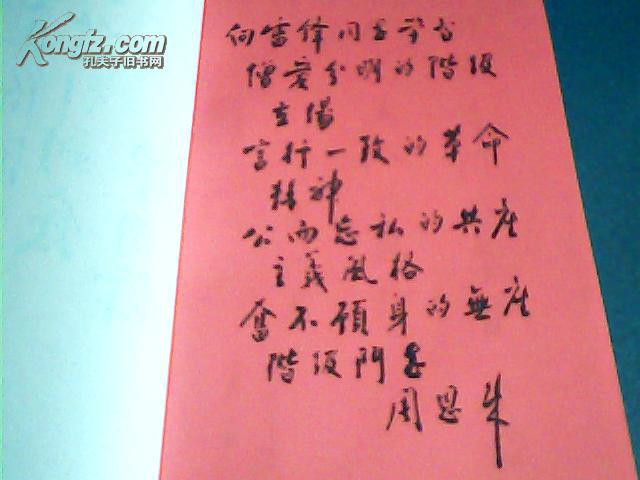 Kongfz.com
孔夫子旧书网
向雷锋同志学习
憎爱分明的階级
立場
言行一致的革命
精神
公而忘私的共产
主義風格
奮不顾身的無产
階级鬥志
周恩来